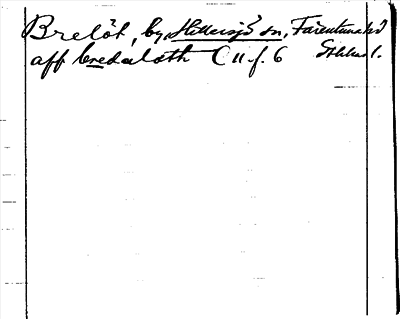 Brelöt, by, Hillersjö sn, Färentuna hd
aff bredaloth C 11 f. 6 Sthlms l.